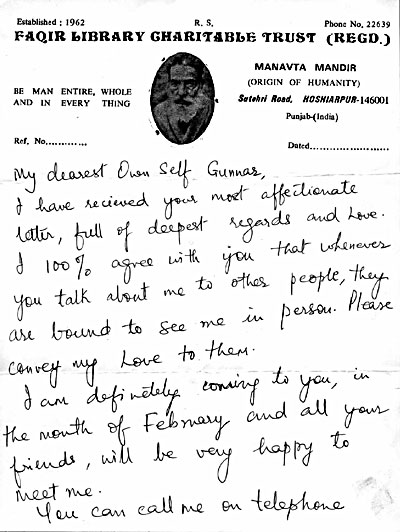 Established : 1962 R. S. Phone No. 22639
FAQIR LIBRARY CHARITABLE TRUST (REGD.)
MANAVTA MANDIR
(ORIGIN OF HUMANITY)
BE MAN ENTIRE, WHOLE
AND IN EVERY THING
Sutehri Road, HOSHIARPUR-146001
Punjab-(India)
Ref. No............. Dated......................
My dearest Own Self Gunnar,
I have recieved your most affectionate
letter, full of deepest regards and Love.
I 100% agree with you that whenever
you talk about me to other people, they
are bound to see me in person. Please
convey my Love to them.
I am definitely coming to you, in
the month of February and all your
friends, will be very happy to
meet me.
You can call me on telephone